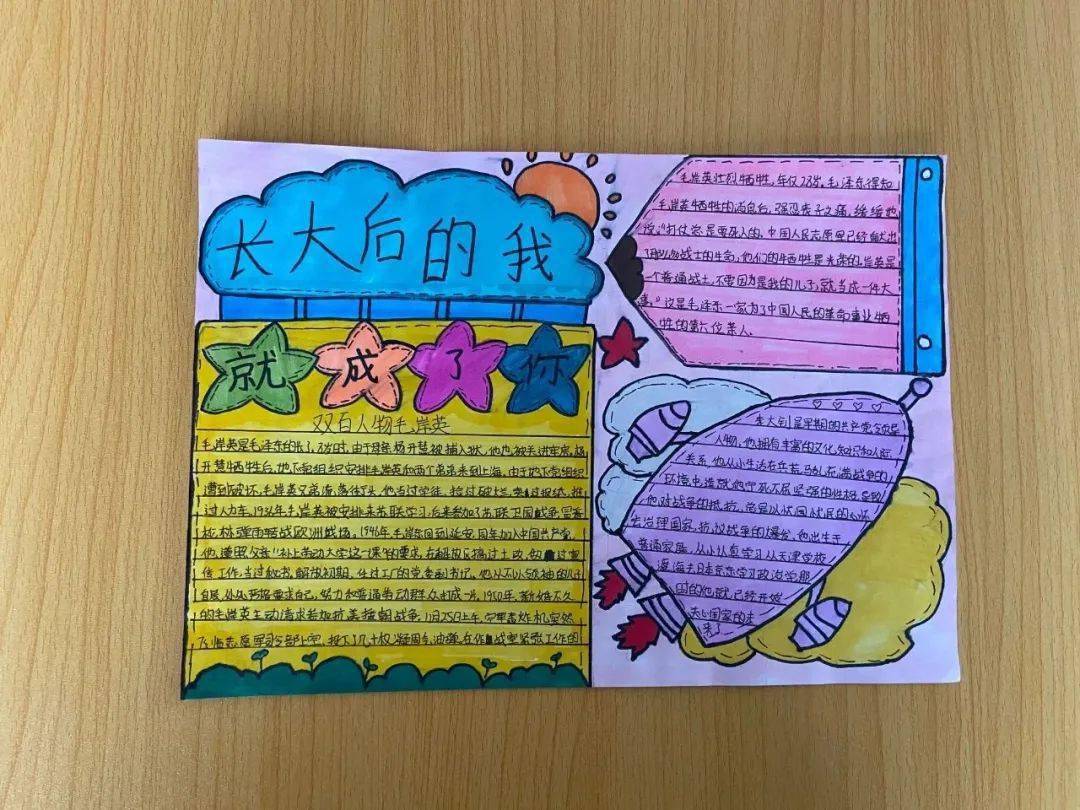 长大后的我
就成了你
双百人物毛岸英
毛岸英是毛泽东的长子,8岁时,由于母亲杨开慧被捕入狱,他也被关进牢房,杨
开慧牺牲后,地下党组织安排毛岸英和两个弟弟来到上海,由于地下党组织
遭到破坏,毛岸英兄弟流落街头,他当过学徒,捡过破烂,卖过报纸,推
过人力车,1936年毛岸英被安排来苏联学习,后来参加了苏联卫国战争,冒着
枪林弹雨转战欧洲战场,1946年毛岸英回到延安,同年加入中国共产党,
他遵照父亲"补上劳动大学这一课"的要求,在解放区搞过土改,做过宣
传工作,当过秘书,解放初期,任过工厂的党委副书记,他从不以领袖的儿子
自居,处处严格要求自己,努力和普通劳动群众打成一片,1950年,新婚不久
的毛岸英主动请求参加抗美援朝战争,11月25日上午,
飞临志愿军司令部上空,投下了几十枚凝固汽油弹,在作战室紧张工作的
毛岸英壮烈牺牲,年仅28岁。毛泽东得知
毛岸英牺牲的消息后,强忍丧子之痛,缓缓地
说:"打仗总是要死人的,中国人民志愿军已经献出
了那么多战士的生命,他们的牺牲是光荣的,岸英是
一个普通战士,不要因为是我的儿子,就当成一件大
事。"这是毛泽东一家为了中国人民的革命事业牺
牲的第六位亲人.
李大钊是早期的共产党领导
人物,他拥有丰富的文化知识和人际
关系,他从小生活在兵荒马乱充满战争的
环境中造就他宁死不屈坚强的性格,
他对战争的抵抗,总是以忧国忧民的心怀
去治理国家,抗议战争的爆发,他出生于
普通家庭,从小认真学习从天津学校
漂海去日本东京学习政治学那
时的他就已经开始
关心国家的未
来了